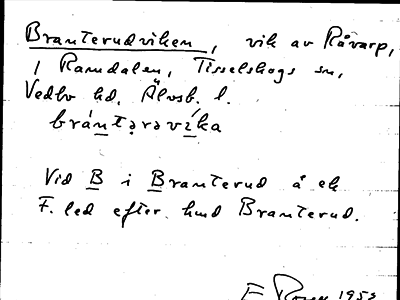 Branterudviken, vik av Råvarp,
i Ramdalen, Tisselskogs sn,
Vedbo hd. Älvsb. l.
brántərəvíka
Vid B i Branterud å ek
F. led efter hmd Branterud.
E Rosen 195